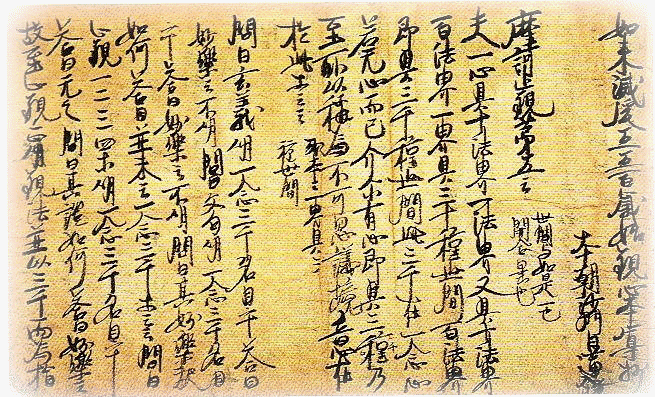 如来滅後五五百歳始観心本尊抄
本朝沙門日蓮撰
摩訶止観第五云
世間与如是一也
開合異也
夫一心具十法界一法界又具十法界
百法界一界具三十種世間百法界
即具三千種世間此三千在一念心
若无心而已介尓有心即具三千乃
至所以称為不可思議境意在
於此等云云
或本云一界具三
種世間
問曰玄義明一念三千名目乎答曰
妙樂云不明問曰文句明一念三千名目
乎答曰妙樂云不明問曰其妙樂釈
如何答曰並未云一念三千等云云問曰
止観一二三四等明一念三千名目乎
答曰无之問曰其證如何答曰妙樂云
故至止観正明観法並以三千而為指